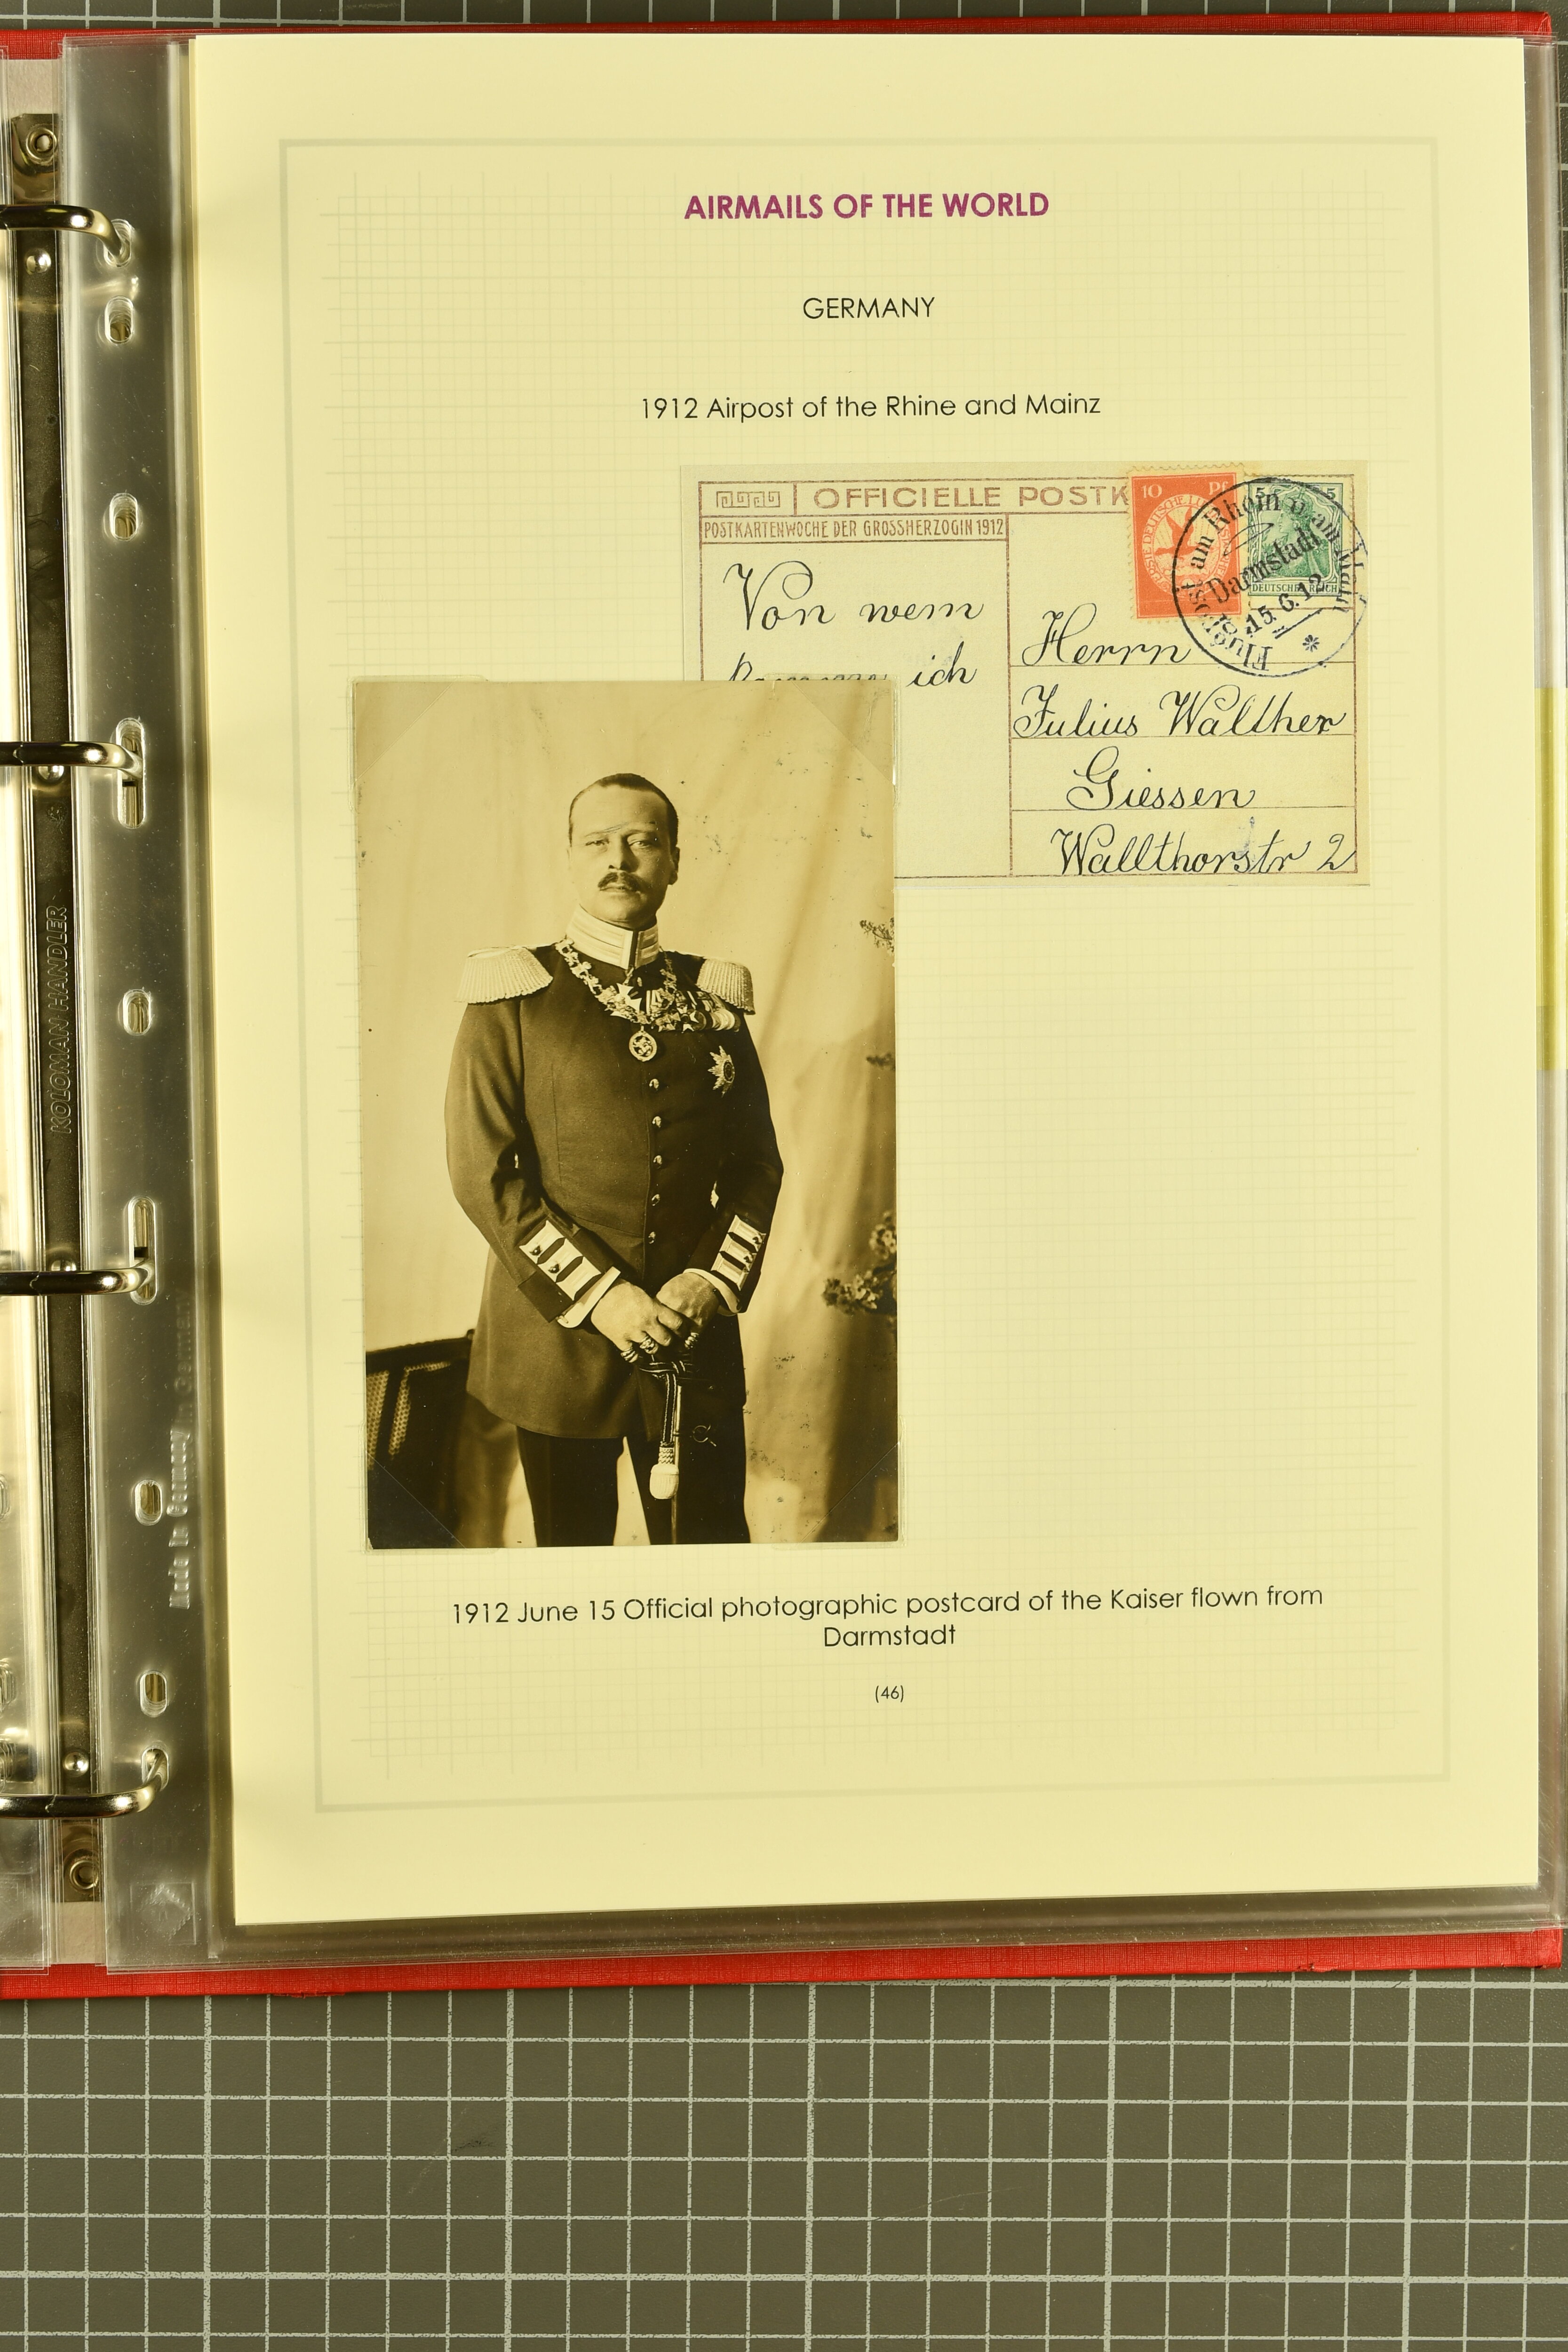 AIRMAILS OF THE WORLD
GERMANY
1912 Airpost of the Rhine and Mainz
OFFICIELLE POSTK
POSTKARTENWOCHE DER GROSSHERZOGIN 1912
Von wem
ich
10 Pf
5 5
DEUTSCHES REICH
Flugpost am Rhein u. am Main
Darmstadt
15.6.12
Herrn
Julius Walther
Giessen
Wallthorstr 2
1912 June 15 Official photographic postcard of the Kaiser flown from
Darmstadt
(46)
KOLOMAN HANDLER
Made in Germany